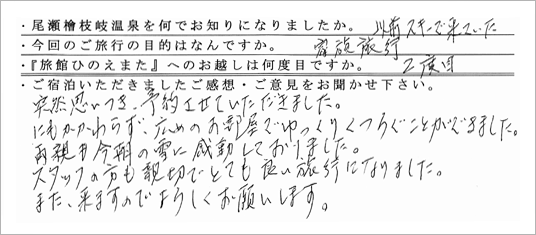 ・尾瀬檜枝岐温泉を何でお知りになりましたか。 以前スキーで来ていた
・今回のご旅行の目的はなんですか。 家族旅行
・『旅館ひのえまた』へのお越しは何度目ですか。 2度目
・ご宿泊いただきましたご感想・ご意見をお聞かせ下さい。
突然思いつき、予約させていただきました。
にもかかわらず、広めのお部屋でゆっくりくつろぐことができました。
両親も今朝の雪に感動しておりました。
スタッフの方も親切でとても良い旅行になりました。
また、来ますのでよろしくお願いします。